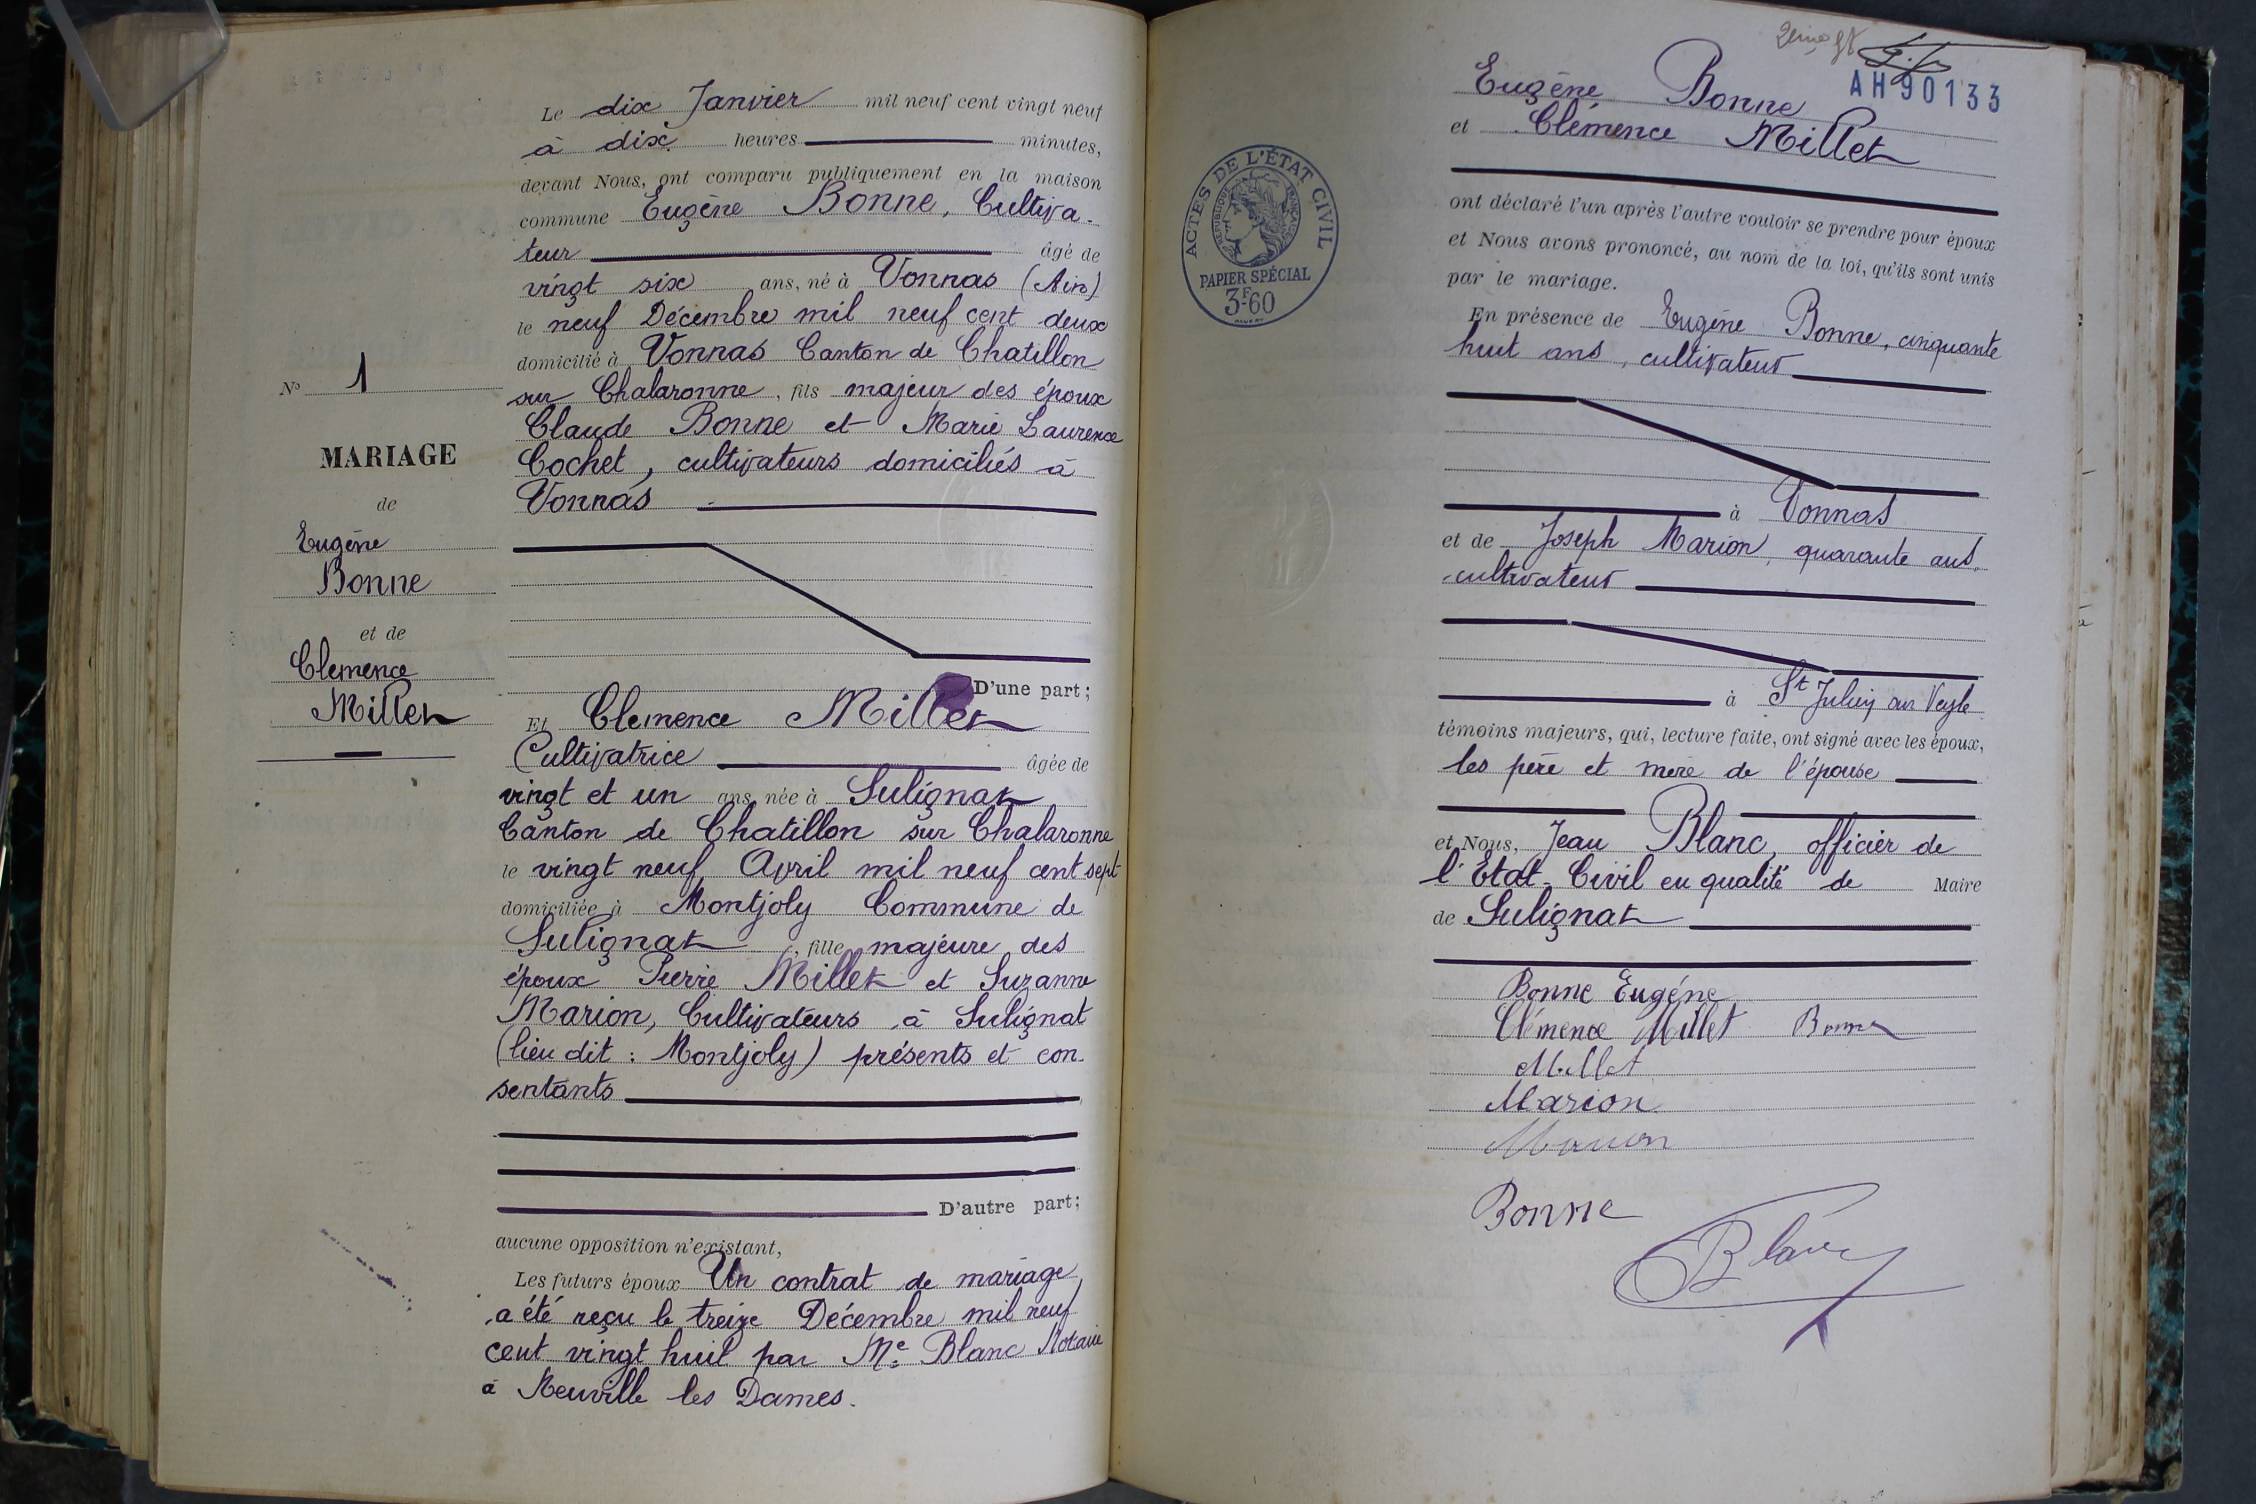 Le dix Janvier mil neuf cent vingt neuf
à dix heures minutes,
devant Nous, ont comparu publiquement en la maison
commune Eugène Bonne, Cultiva-
teur âgé de
vingt six ans, né à Vonnas (Ain)
le neuf Décembre mil neuf cent deux
domicilié à Vonnas Canton de Chatillon
sur Chalaronne, fils majeur des époux
Claude Bonne et Marie Laurence
Cochet, cultivateurs domiciliés à
Vonnas
D'une part;
Et Clemence Millet
Cultivatrice âgée de
vingt et un ans, née à Sulignat
Canton de Chatillon sur Chalaronne
le vingt neuf Avril mil neuf cent sept
domiciliée à Montjoly Commune de
Sulignat, fille majeure des
époux Pierre Millet et Suzanne
Marion, Cultivateurs à Sulignat
(lieu dit : Montjoly) présents et con-
sentants
D'autre part;
aucune opposition n'existant,
Les futurs époux Un contrat de mariage
a été reçu le treize Décembre mil neuf
cent vingt huit par Me Blanc Notaire
à Neuville les Dames.
No 1
MARIAGE
de
Eugène
Bonne
et de
Clemence
Millet
2ème
AH90133
Eugène Bonne
et Clémence Millet
ACTES DE L'ÉTAT CIVIL
RÉPUBLIQUE FRANÇAISE
PAPIER SPÉCIAL
3F60
ont déclaré l'un après l'autre vouloir se prendre pour époux
et Nous avons prononcé, au nom de la loi, qu'ils sont unis
par le mariage.
En présence de Eugène Bonne, cinquante
huit ans, cultivateur
à Vonnas
et de Joseph Marion, quarante ans,
cultivateur
à St Julien sur Veyle
témoins majeurs, qui, lecture faite, ont signé avec les époux,
les père et mère de l'épouse
et Nous, Jean Blanc, officier de
l'Etat-Civil en qualité de Maire
de Sulignat
Bonne Eugéne
Clémence Millet Bonne
Millet
Marion
Marion
Bonne
Blanc